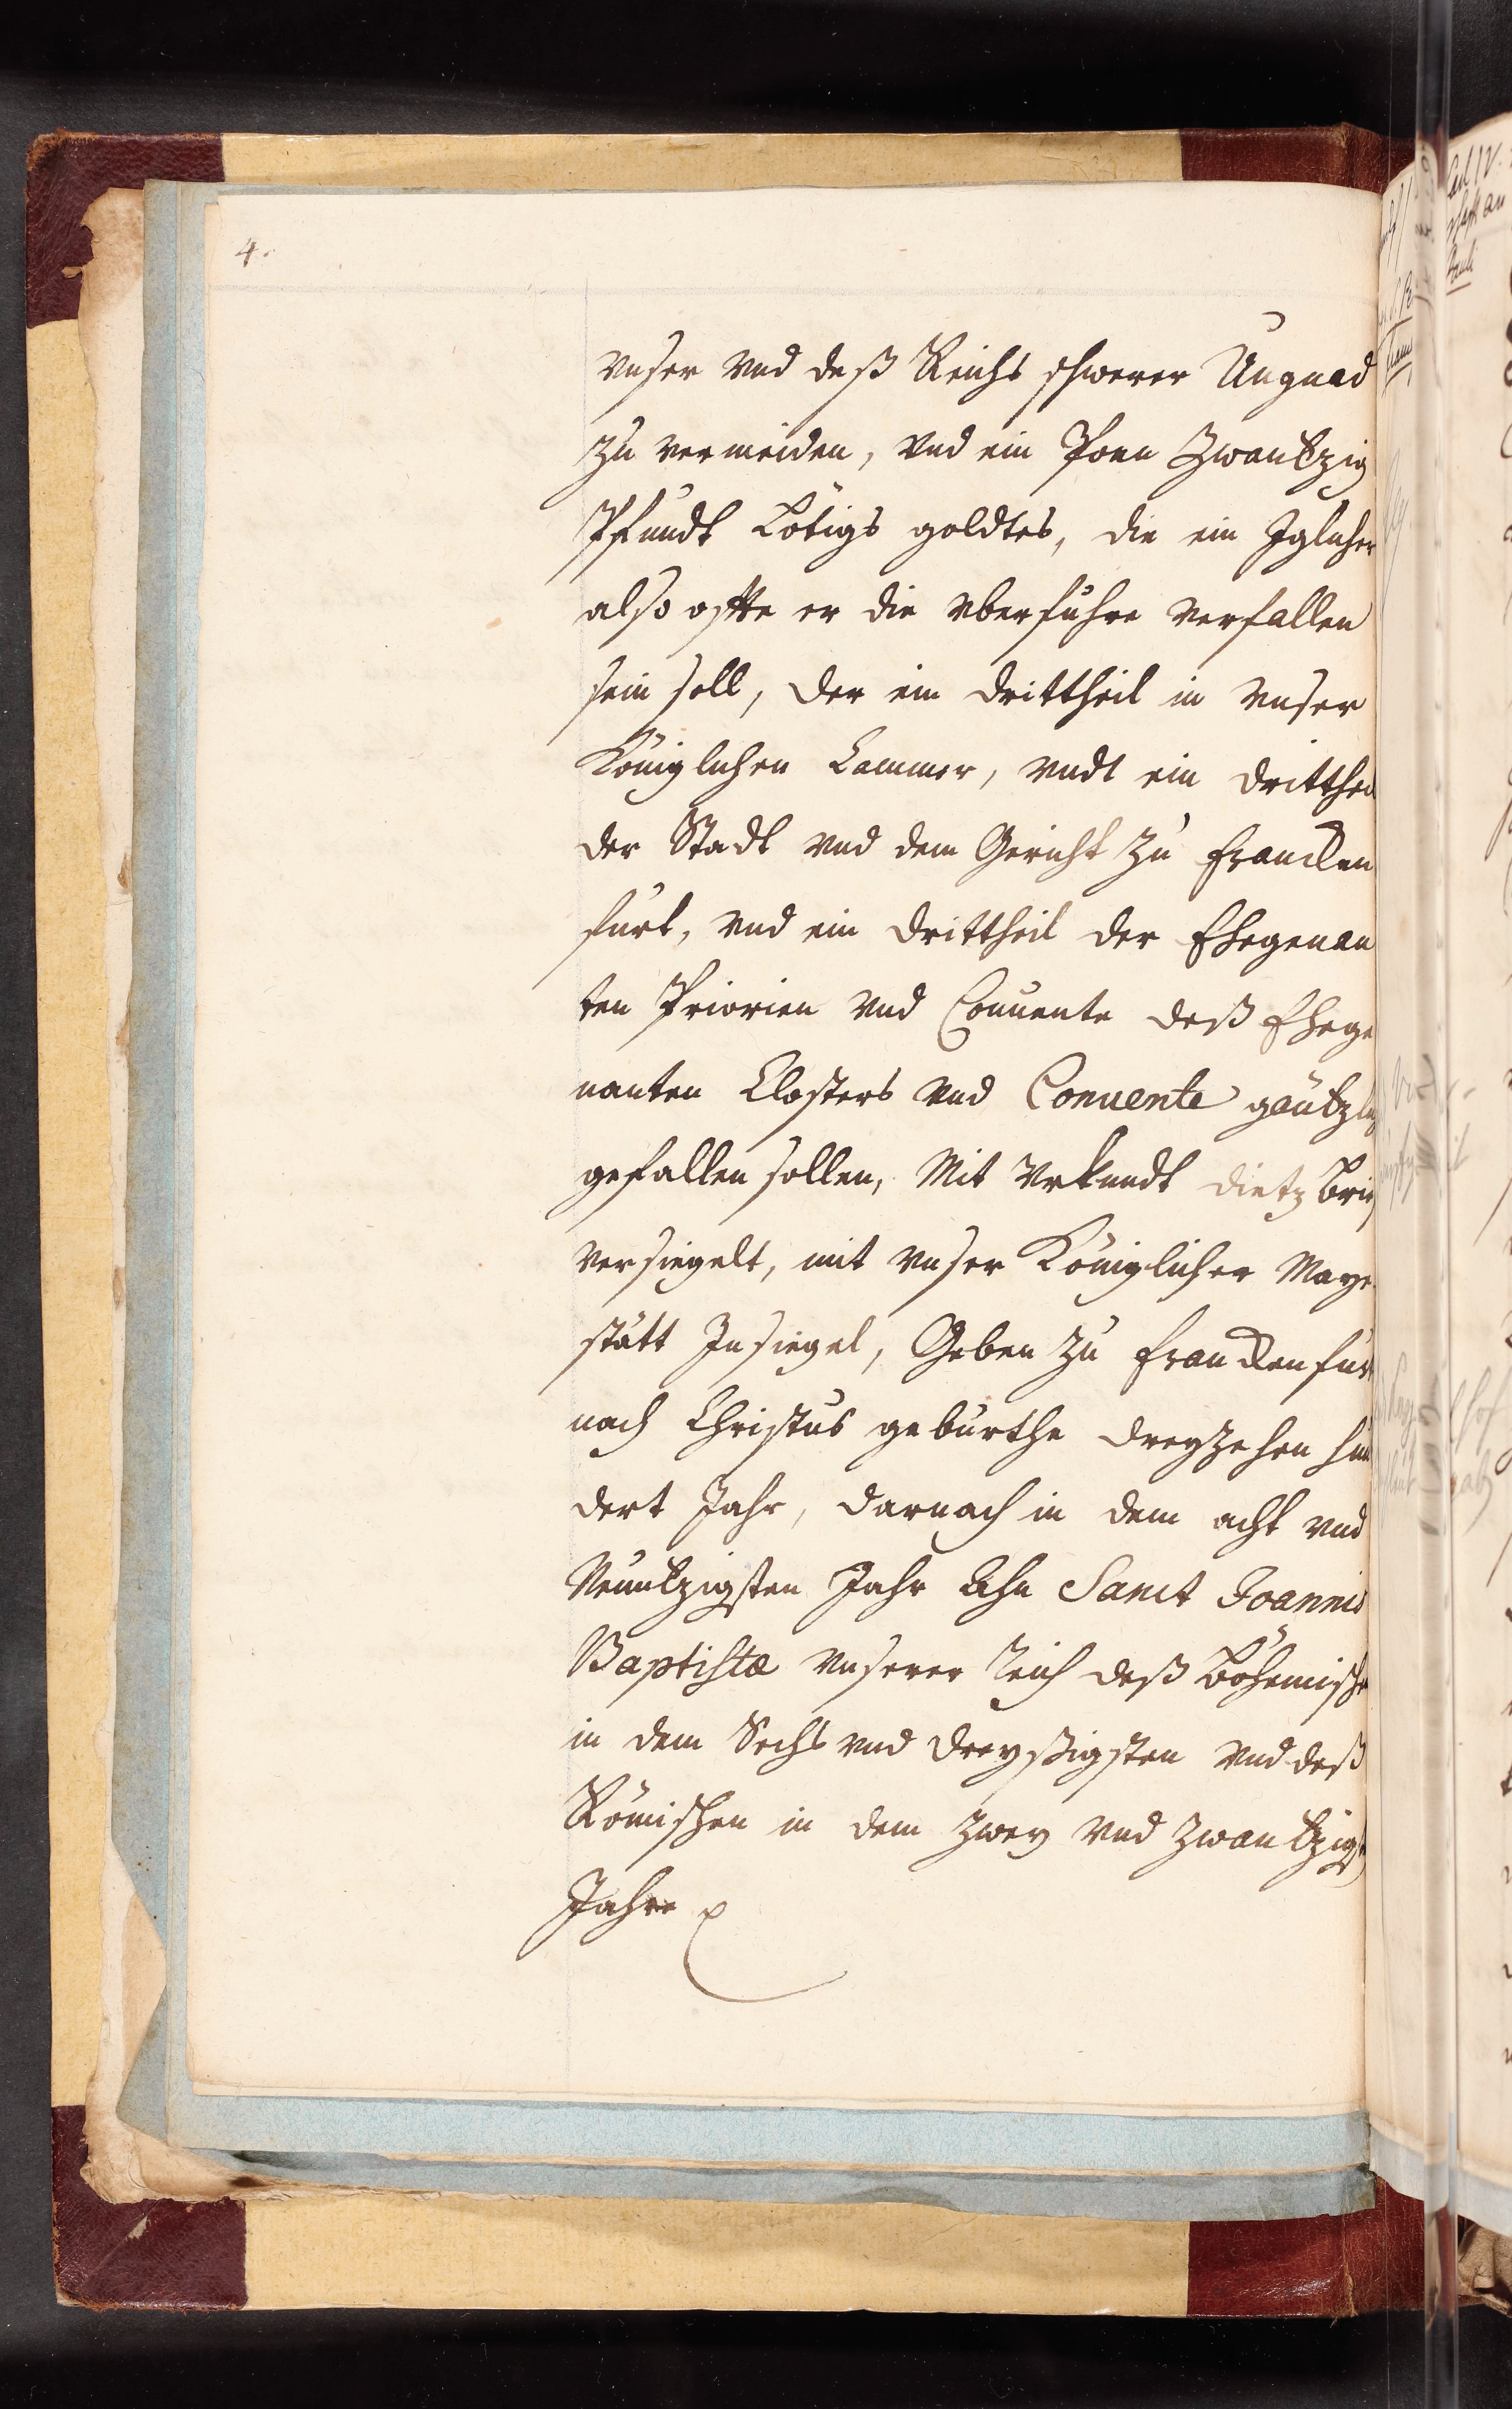 4.
vnser vnd deß Reichs schwerer Ungnad
zu vermeiden, vnd ein Poen Zwantzig
Pfundt Lötigs goldtes, die ein Jglicher
also offte er die vberfuhre verfallen
sein soll, der ein drittheil in vnser
Königlichen Cammer, vndt ein dritthei
der Stadt vnd dem Gericht zu francken
furt, vnd ein drittheil der Ehegenan
ten Priorien vnd Conuente deß Ehege
nanten Closters vnd Conuente gäntzlich
gefallen sollen, Mit Vrkundt dietz brief
versiegelt, mit vnser Königlicher Maye
stätt Jnsiegel, Geben zu franckenfurt
nach Christus geburthe dreyzehen hun
dert Jahr, darnach in dem acht vnd
Neuntzigsten Jahr Ahn Sanct Joannis
Baptistæ vnserer Reich deß böhemische
in dem Sechs vnd dreyßigsten vnd deß
Römischen in dem zwey vnd zwantzigst
Jahre